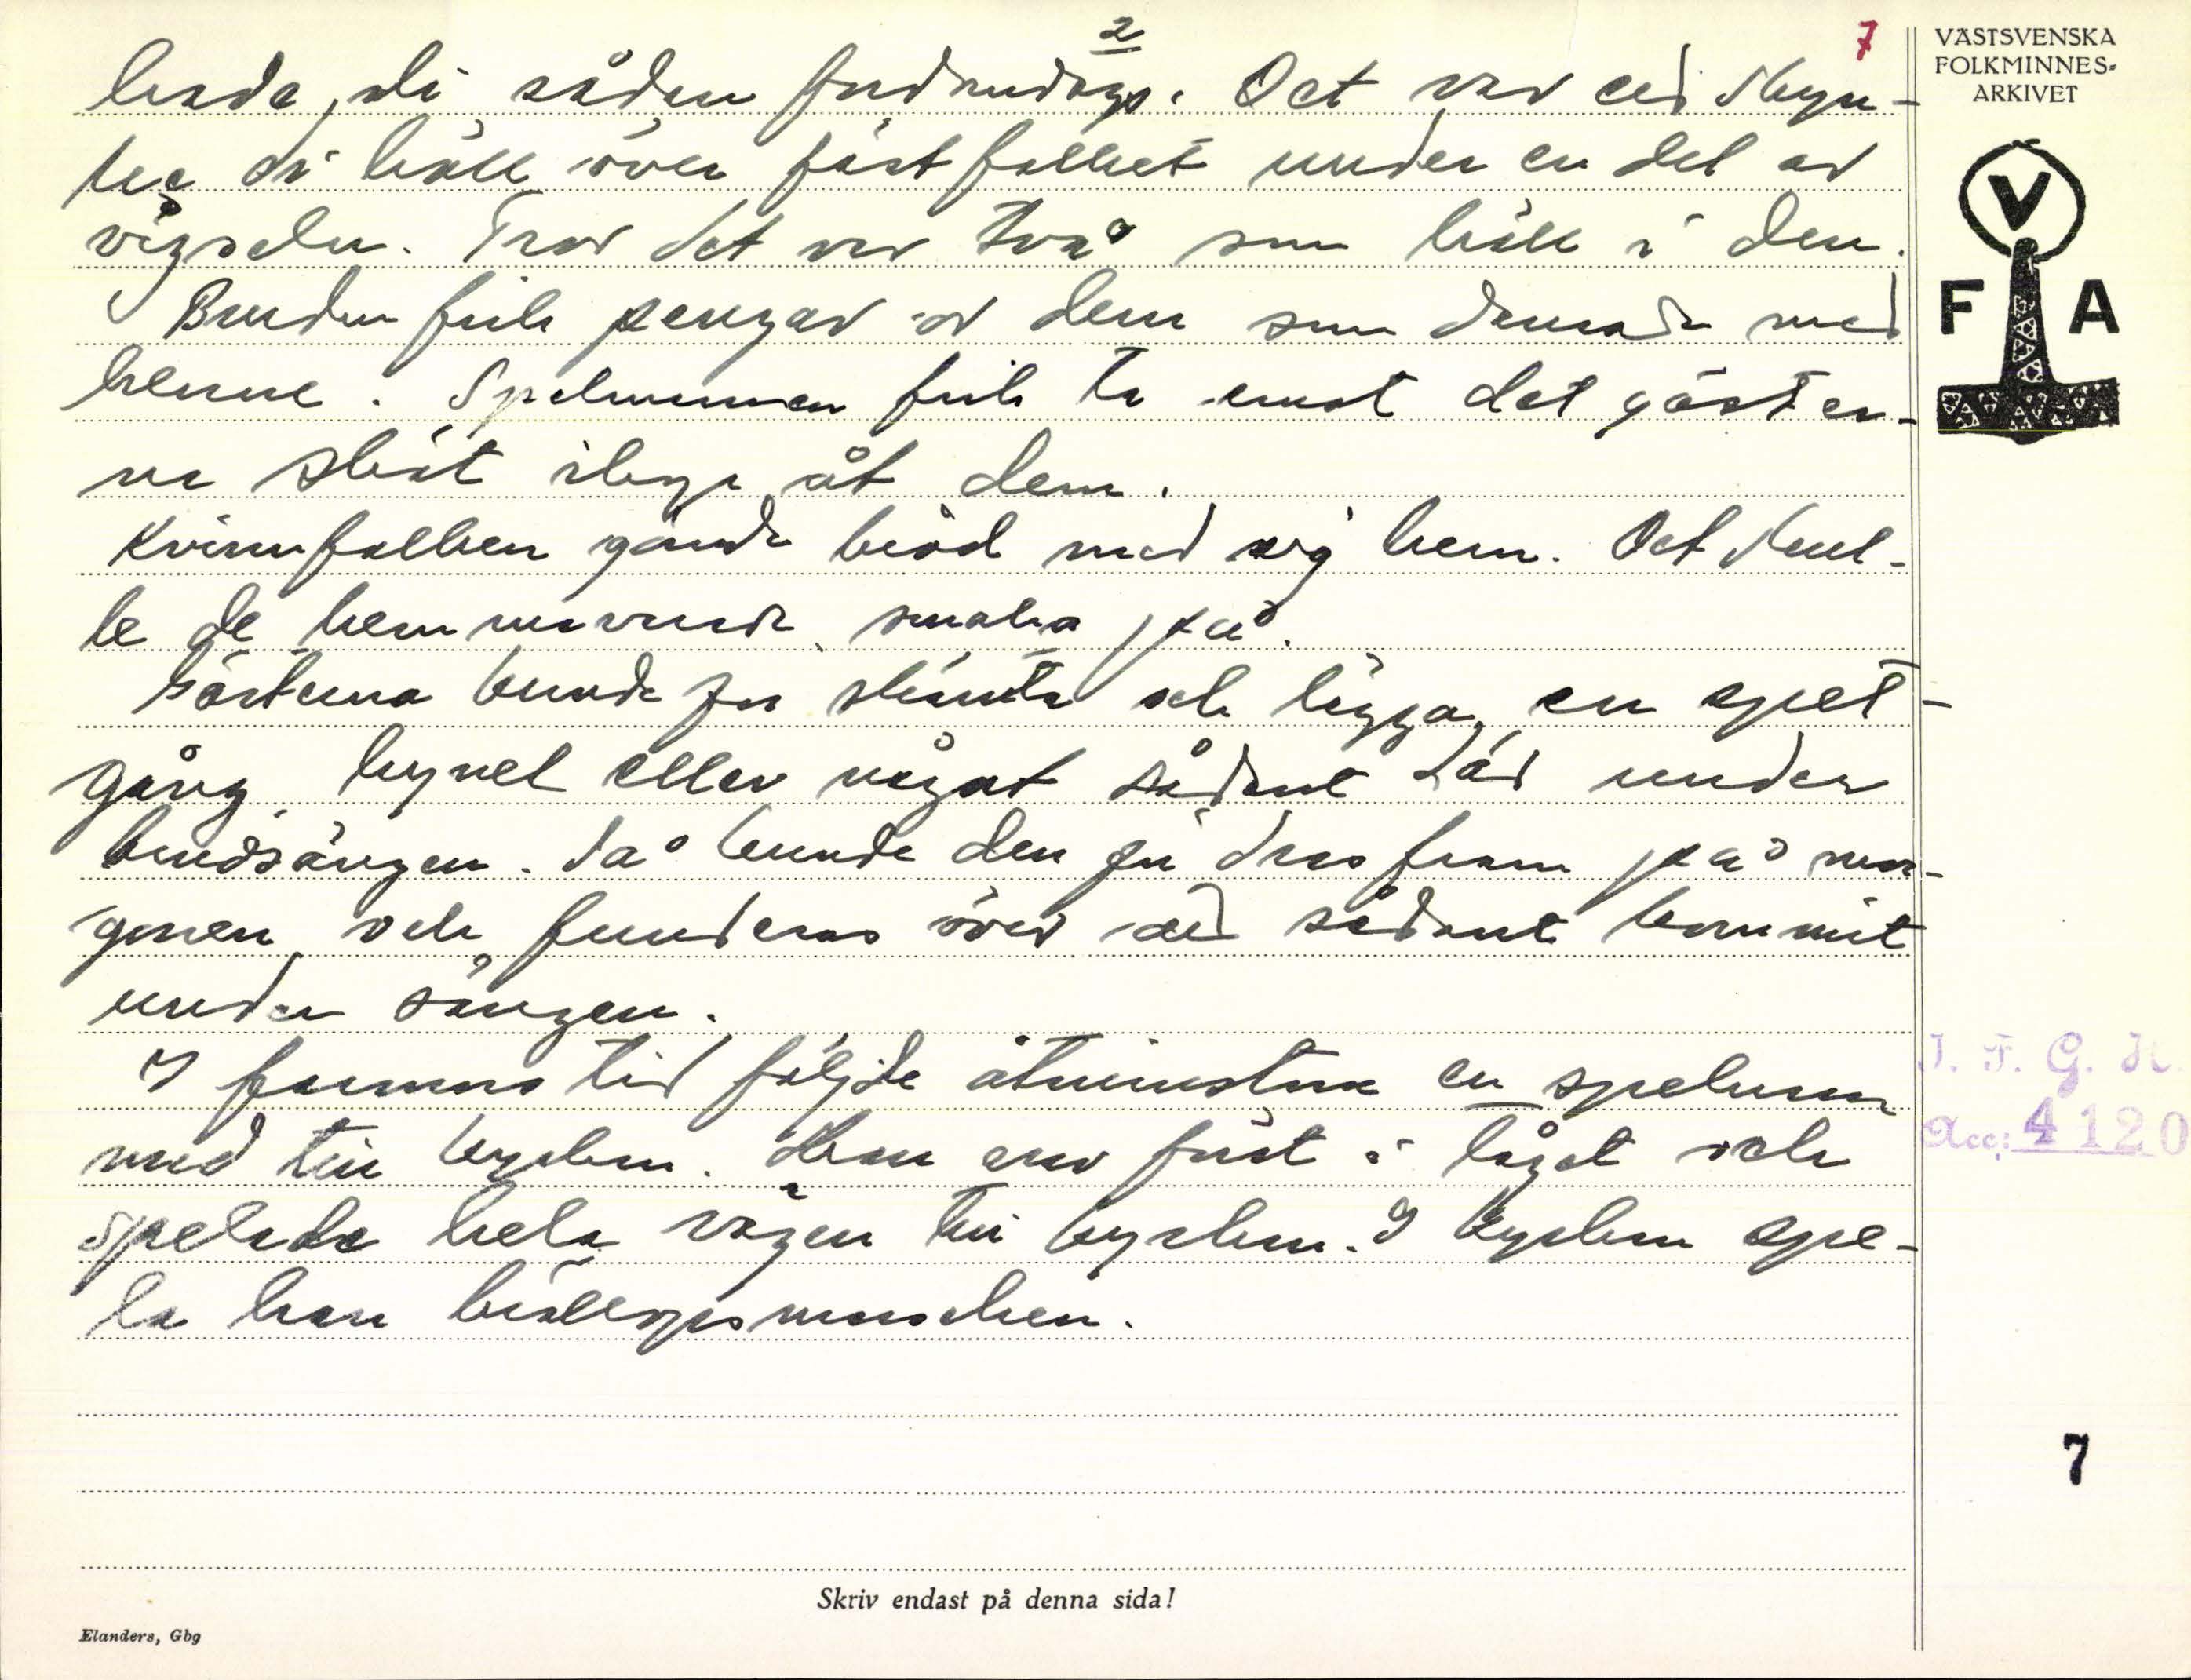 2
7
VÄSTSVENSKA
FOLKMINNES-
ARKIVET
V
F A
di sådan. Det var ed skyn-
ke di höll över fästfolket under en del av
vigseln. Tror det var två som höll i den.
Bruden fick pengar av dem som dansade med
henne. Spelmannen fick ta emot det gäster-
na sköt ihop åt dem.
Kvinnfolken gömde bröd med sig hem. Det skul-
le de hemmavarande smaka på.
Gästerna kunde för skämta och lägga en spet-
gång, hyvel eller något sådant där under
brudsängen. Så kunde den ju dras fram på mor-
gonen och funderas över ad sådant kommit
under sängen.
I forna tid följde åtminstone en spelman
med till kyrkan. Han var först i tåget och
spelade hela vägen till kyrkan. I kyrkan spe-
la han bröllopsmarschen.
I. F. G. H.
Acc: 4120
7
Skriv endast på denna sida!
Elanders, Gbg